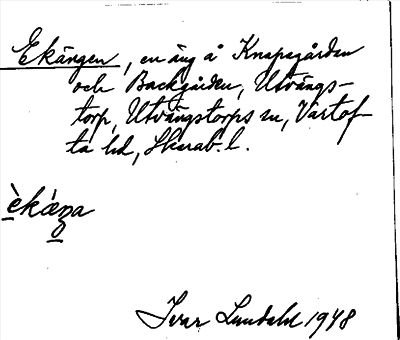 Ekängen, en äng å Knapagården
och Backgården, Utvängs-
torp, Utvängstorps sn, Vartof-
ta hd, Skarab. l.
èkáŋa
Ivar Lundahl 1948